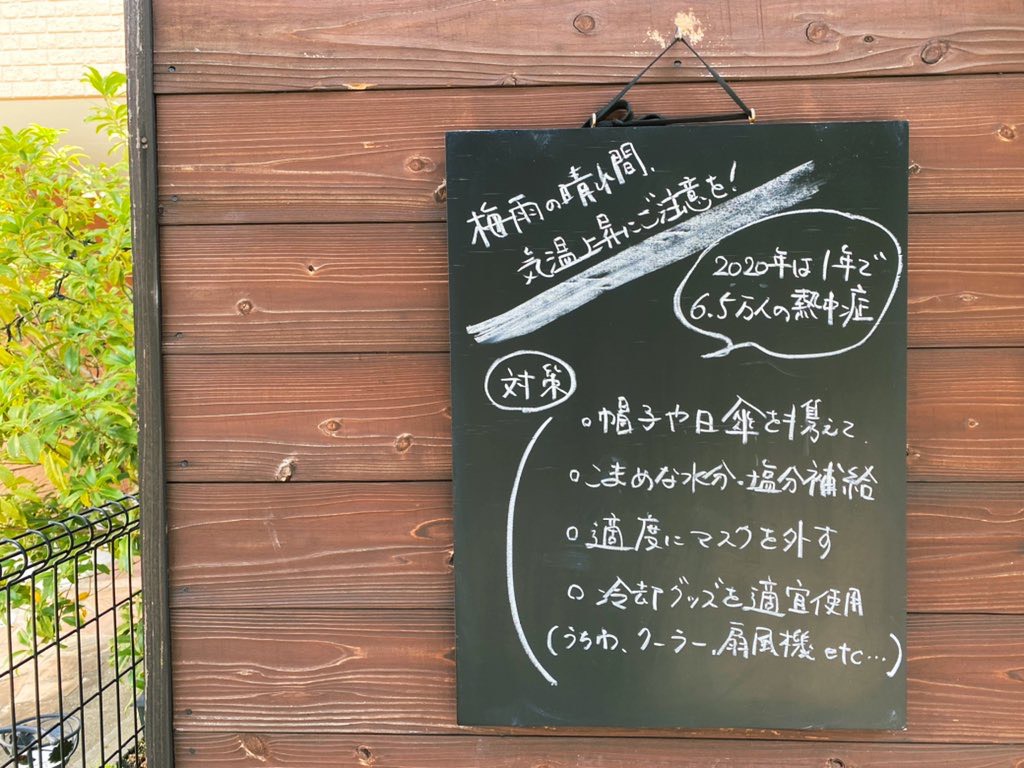 梅雨の晴れ間、
気温上昇にご注意を!
2020年は1年で
6.5万人の熱中症
対策
○帽子や日傘を携えて
○こまめな水分・塩分補給
○適度にマスクを外す
○冷却グッズを適宜使用
(うちわ、クーラー、扇風機 etc…)